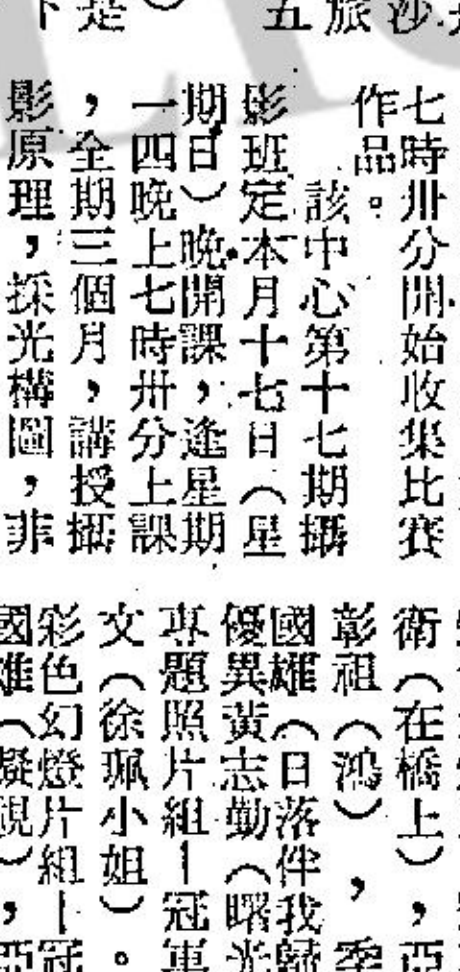 旅
沙
下是）
五
七時卅分開始收集比賽
作品。
該中心第十七期攝
影班定本月十七日（星
期日）晚開課，逢星期
一四晚上七時卅分上課
，全期三個月，講授攝
影原理，採光構圖，菲
衛（在橋上），亞
彰祖（鴻），季
國雄（日落伴我歸
優異黃志勤（曙光
專題照片組－冠軍
文（徐珮小姐）。
彩色（幻燈片組－冠
國雄（凝視），亞